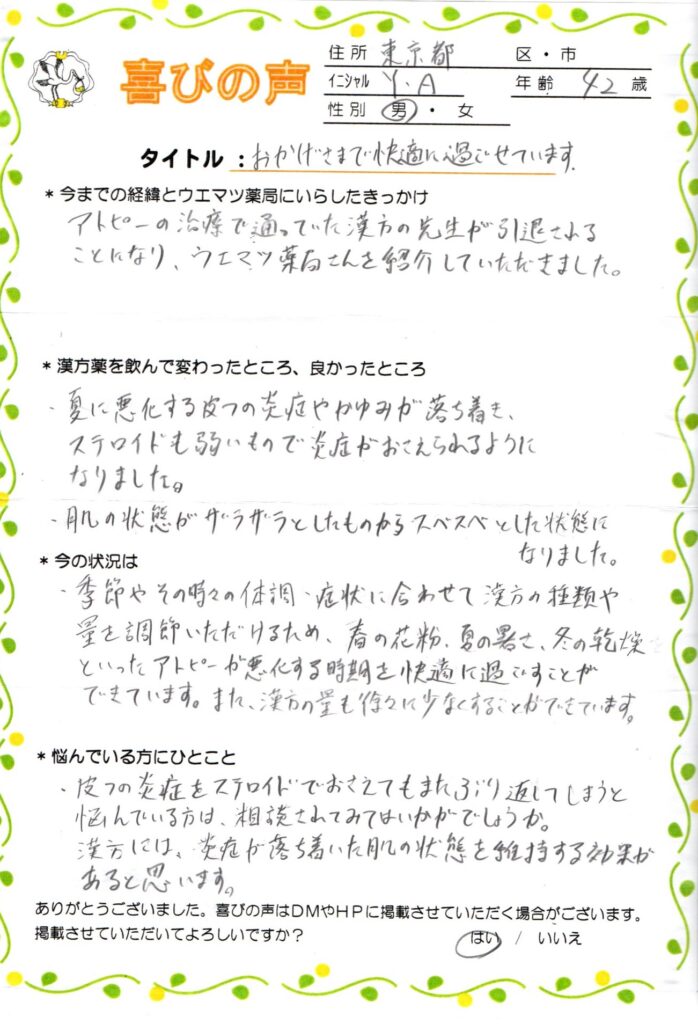 喜びの声
住所 東京都 区・市
イニシャル Y.A 年齢 42 歳
性別 男・女
タイトル：おかげさまで快適に過ごせています。
*今までの経緯とウエマツ薬局にいらしたきっかけ
アトピーの治療で通っていた漢方の先生が引退される
ことになり、ウエマツ薬局さんを紹介していただきました。
*漢方薬を飲んで変わったところ、良かったところ
・夏に悪化する皮フの炎症やかゆみが落ち着き、
ステロイドも弱いもので炎症がおさえられるように
なりました。
・肌の状態がザラザラとしたものからスベスベとした状態に
なりました。
*今の状況は
・季節やその時々の体調・症状に合わせて漢方の種類や
量を調節いただけるため、春の花粉、夏の暑さ、冬の乾燥
といったアトピーが悪化する時期を快適に過ごすことが
できています。また、漢方の量も徐々に少なくすることができています。
*悩んでいる方にひとこと
・皮フの炎症をステロイドでおさえてもまたぶり返してしまうと
悩んでいる方は、相談されてみてはいかがでしょうか。
漢方には、炎症が落ち着いた肌の状態を維持する効果が
あると思います。
ありがとうございました。喜びの声はDMやHPに掲載させていただく場合がございます。
掲載させていただいてよろしいですか？ はい / いいえ